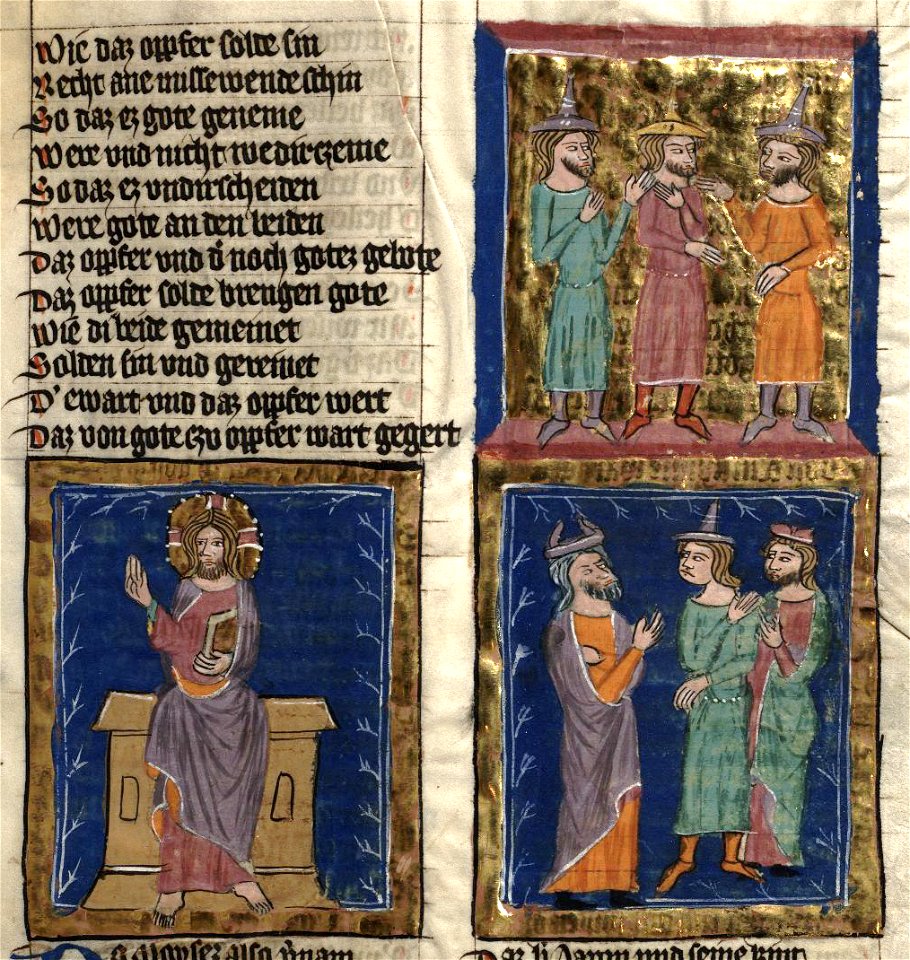 Wie daz oppfer solde sin
Recht ane missewende schin
So daz ez gote geneme
Were vnd nicht wedirczeme
So daz ez vndirscheiden
Were gote an den beiden
Daz opper vnd d' noch gotez gebote
Daz opper solde brengen gote
Wie di beide gemeinet
Solden sin vnd gereinet
D' ewart vnd daz oppfer wert
Daz von gote czu oppfer wart gegert
moyses also
Daz h' Aaron vnd seine kint